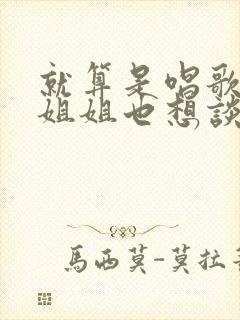 就算是唱歌
姐姐也想談
馬西莫-莫拉